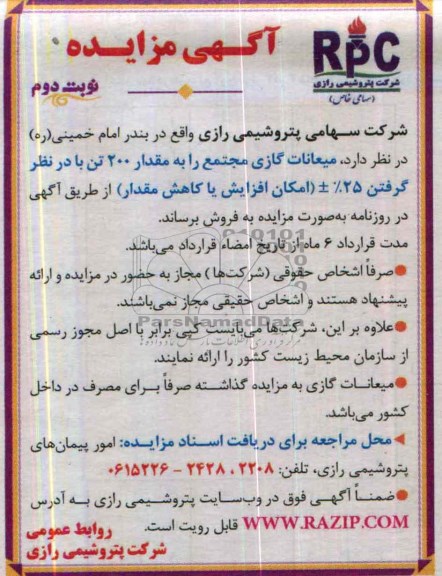 آگـهی مزایـده
نوبت دوم
RPC
شرکت پتروشیمی رازی
(سهامی خاص)
شرکت سـهامی پتروشیمی رازی واقع در بندر امام خمینی(ره)
در نظر دارد، میعانات گازی مجتمع را به مقدار ۲۰۰ تن با در نظر
گرفتن ۲۵٪ ± (امکان افزایش یا کاهش مقدار) از طریق آگهی
در روزنامه به‌صورت مزایده به فروش برساند.
مدت قرارداد ۶ ماه از تاریخ امضاء قرارداد می‌باشد.
●صرفاً اشخاص حقوقی (شرکت‌ها) مجاز به حضور در مزایده و ارائه
پیشنهاد هستند و اشخاص حقیقی مجاز نمی‌باشند.
●علاوه بر این، شرکت‌ها می‌بایست کپی برابر با اصل مجوز رسمی
از سازمان محیط زیست کشور را ارائه نمایند.
●میعانـات گازی به مزایده گذاشـته صرفاً بـرای مصرف در داخل
کشور می‌باشد.
◄محل مراجعه برای دریافت اسناد مزایـده: امور پیمان‌های
پتروشیمی رازی، تلفن: ۲۲۰۸ ، ۲۴۲۸ - ۰۶۱۵۲۲۶
●ضمنـاً آگهـی فوق در وب‌سـایت پتروشـیمی رازی بـه آدرس
WWW.RAZIP.COM قابل رویت است.
روابط عمومی
شرکت پتروشیمی رازی
ParsNamadData